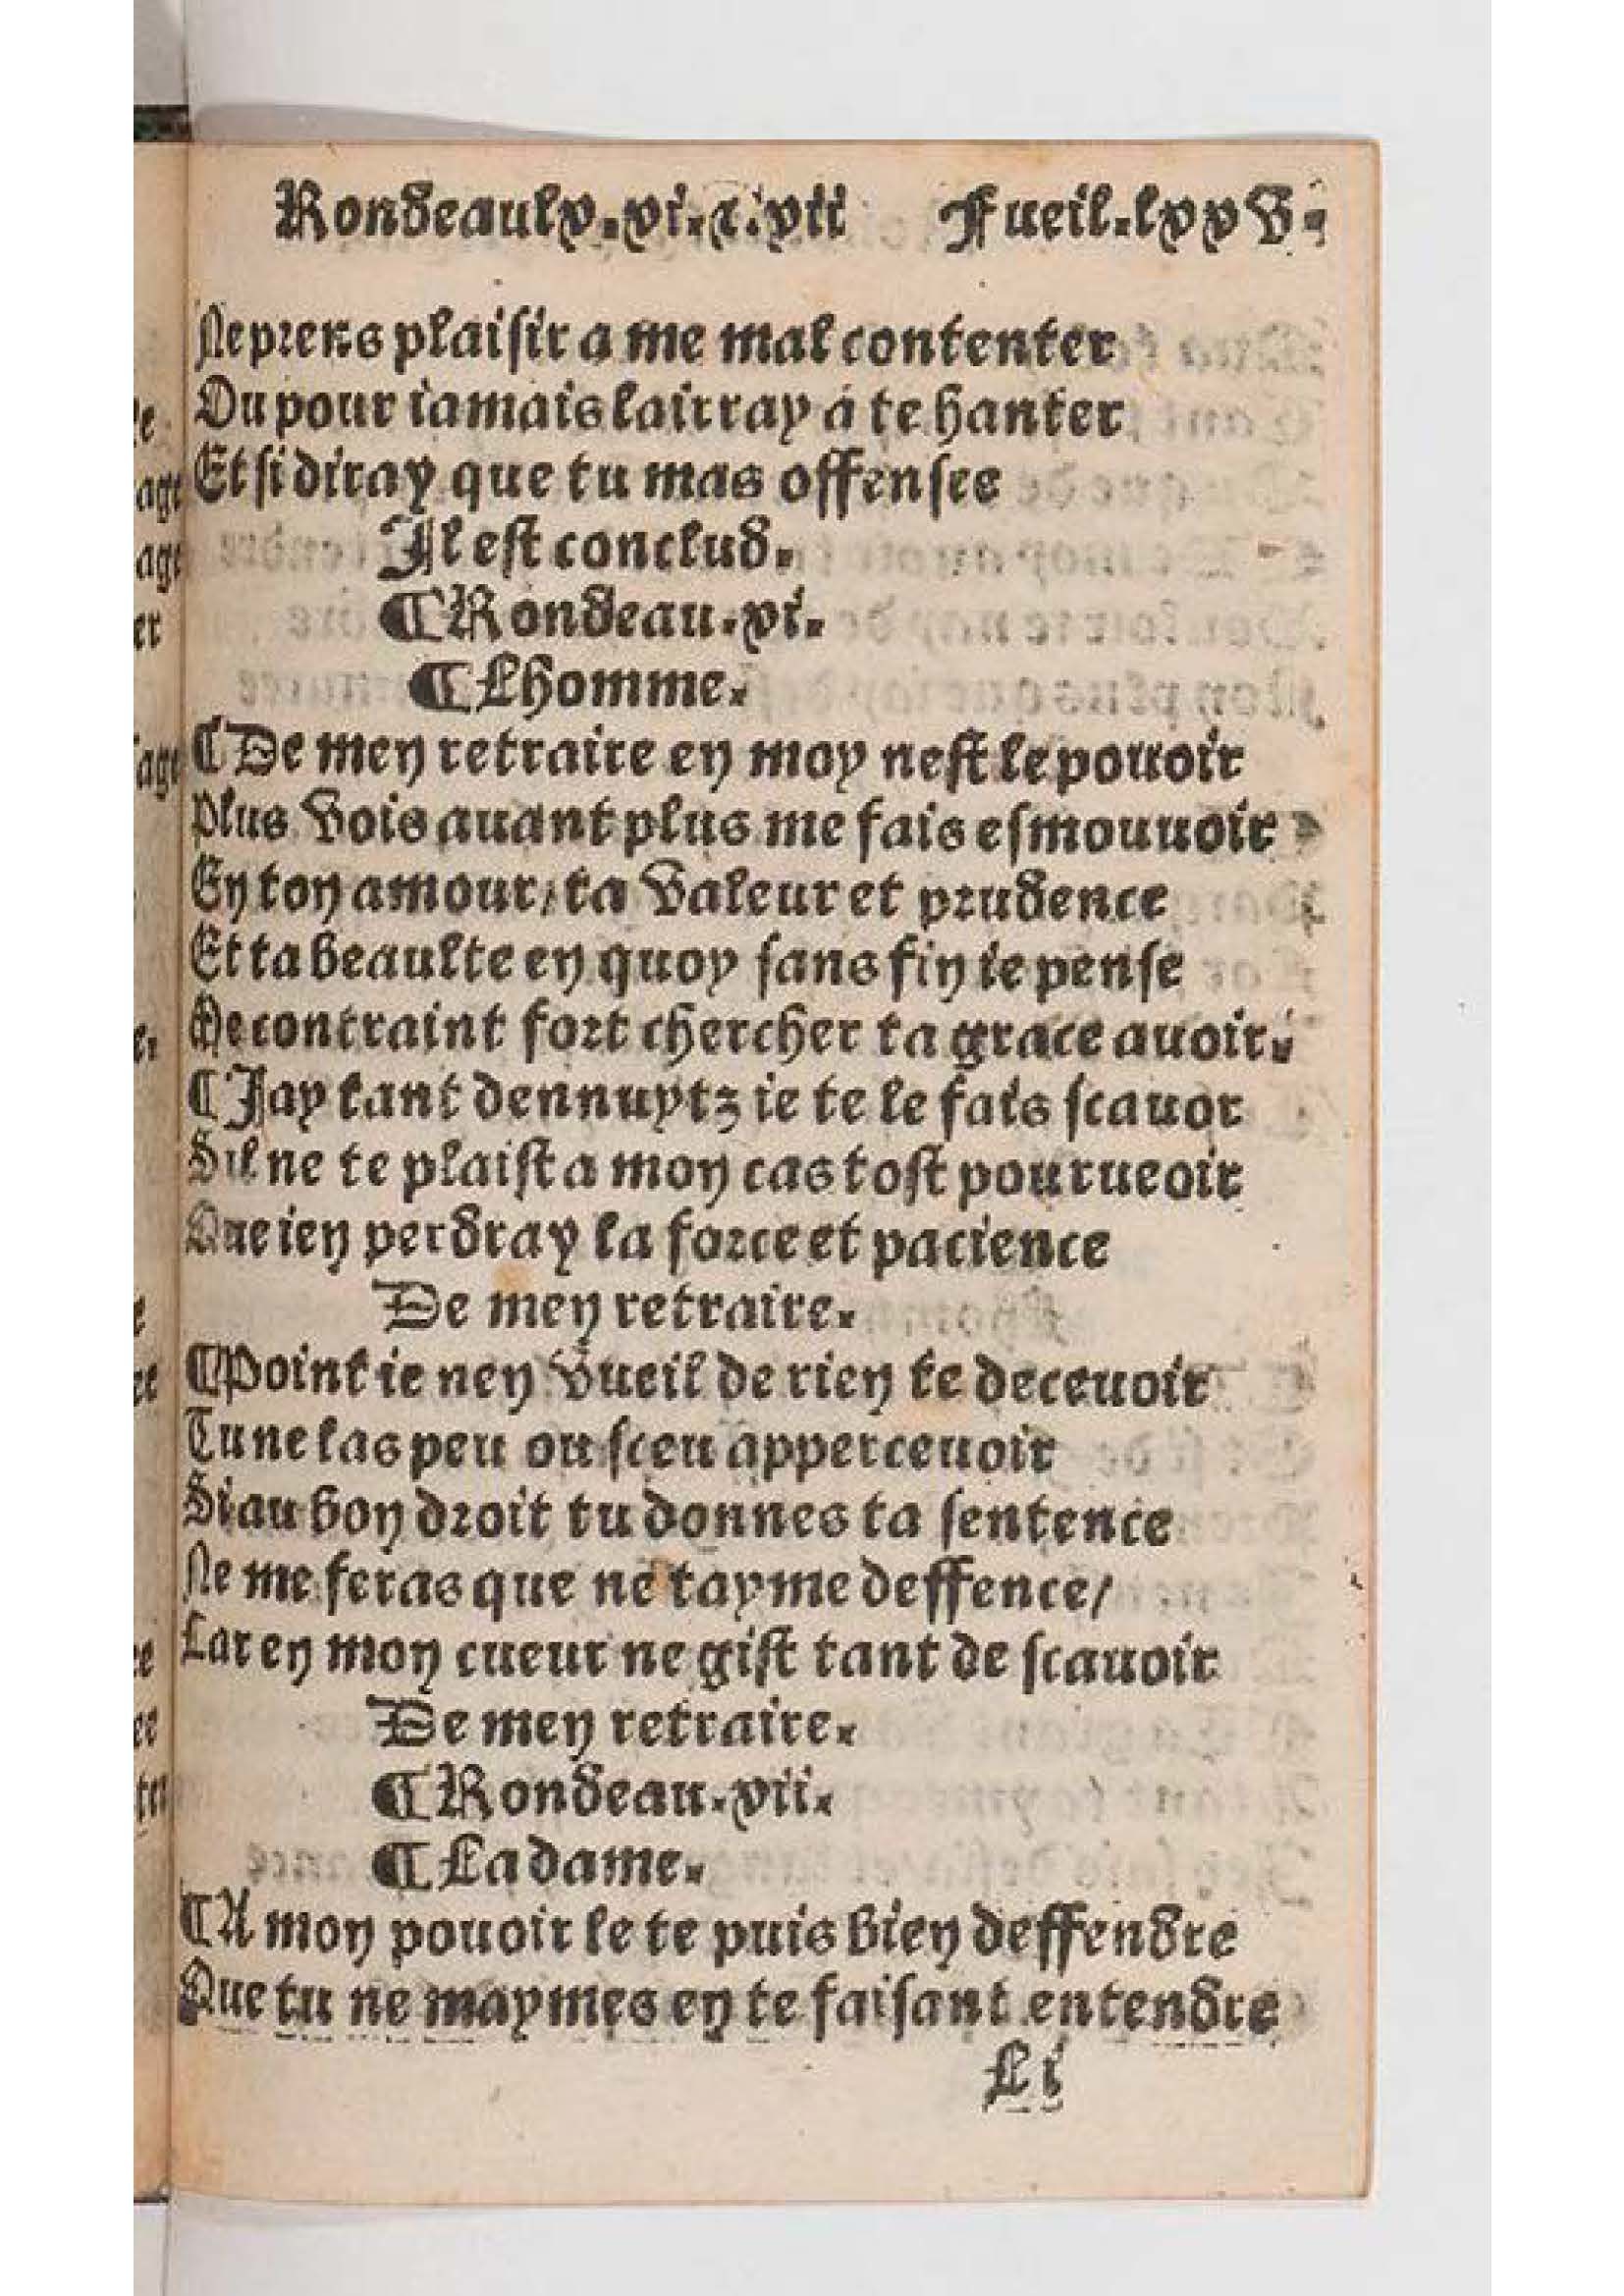 Rondeaulx.vi.⁊.vii Fueil.lxxv.
Ne prens plaisir a me mal contenter
Ou pour iamais lairray a te hanter
Et si diray que tu mas offensee
Il est conclud.
¶Rondeau.vi.
¶Lhomme.
¶De men retraire en moy nest le pouoir
Plus vois auant plus me fais esmouuoir
En ton amour/ta valeur et prudence
Et ta beaulte en quoy sans fin ie pense
Me contraint fort chercher ta grace auoir.
¶Jay tant dennuytz ie te le fais scauor
Sil ne te plaist a mon cas tost pourueoir
Que ien perdray la force et pacience
De men retraire.
¶Point ie nen vueil de rien te deceuoir
Tu ne las peu ou sceu apperceuoir
Si au bon droit tu donnes ta sentence
Ne me feras que ne tayme deffence/
Car en mon cueur ne gist tant de scauoir
De men retraire.
¶Rondeau.vii.
¶La dame.
¶A mon pouoir ie te puis bien deffendre
Que tu ne maymes en te faisant entendre
Li
e
age
age
er
age